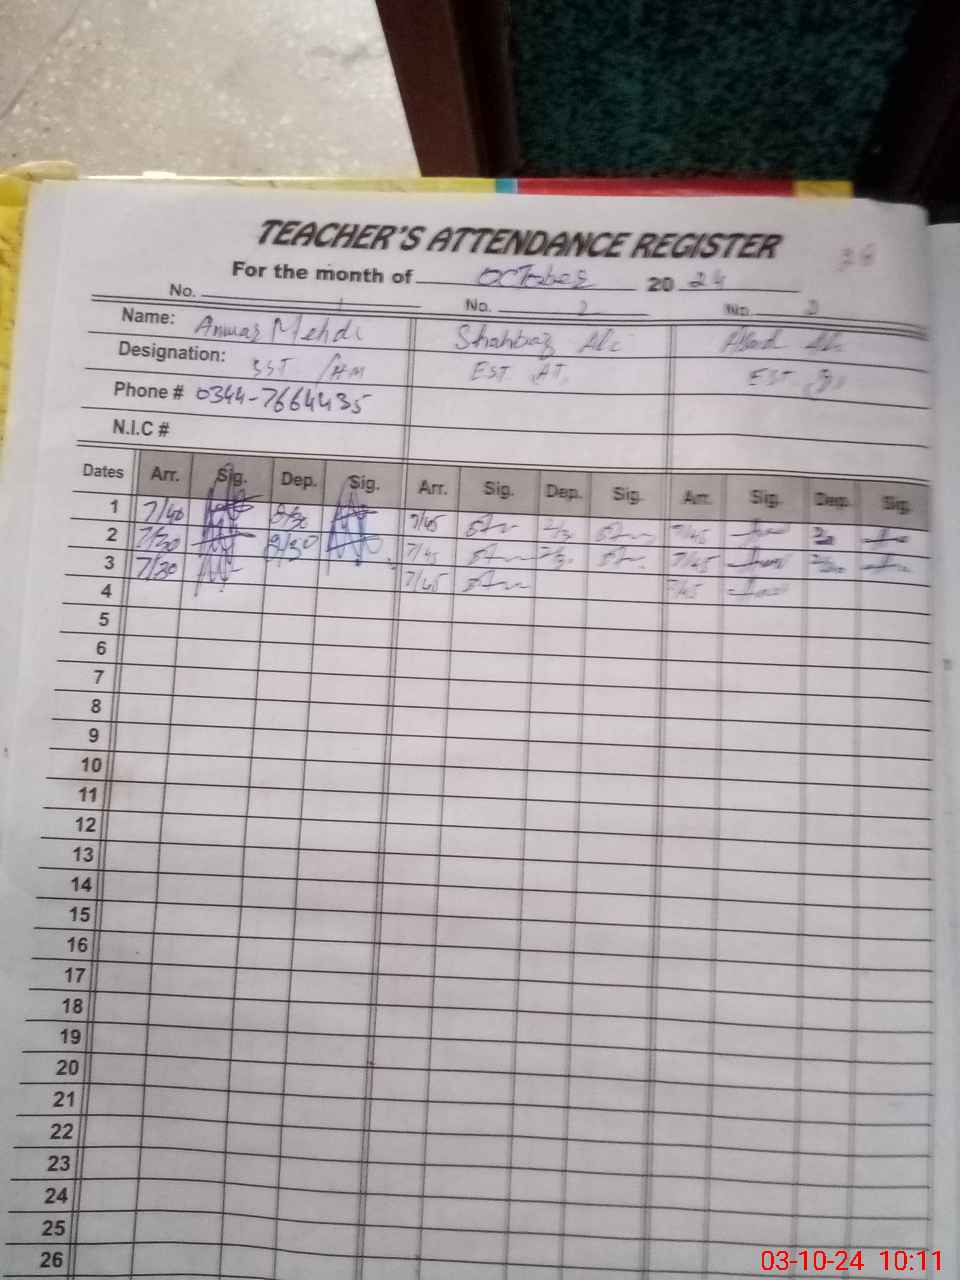 TEACHER'S ATTENDANCE REGISTER
For the month of October 20 24
No. 1 No. 2 No. 3
Name: Anwar Mehdi Shahbaz Ali Ali
Designation: SST /HM EST AT EST
Phone # 0344-7664435
N.I.C #
Dates Arr. Sig. Dep. Sig. Arr. Sig. Dep. Sig. Arr. Sig. Dep. Sig.
1 7/40 7/45 7/45
2 7/30 2/30 7/45 7/45
3 7/30 7/45 7/45
4
5
6
7
8
9
10
11
12
13
14
15
16
17
18
19
20
21
22
23
24
25
26
03-10-24 10:11